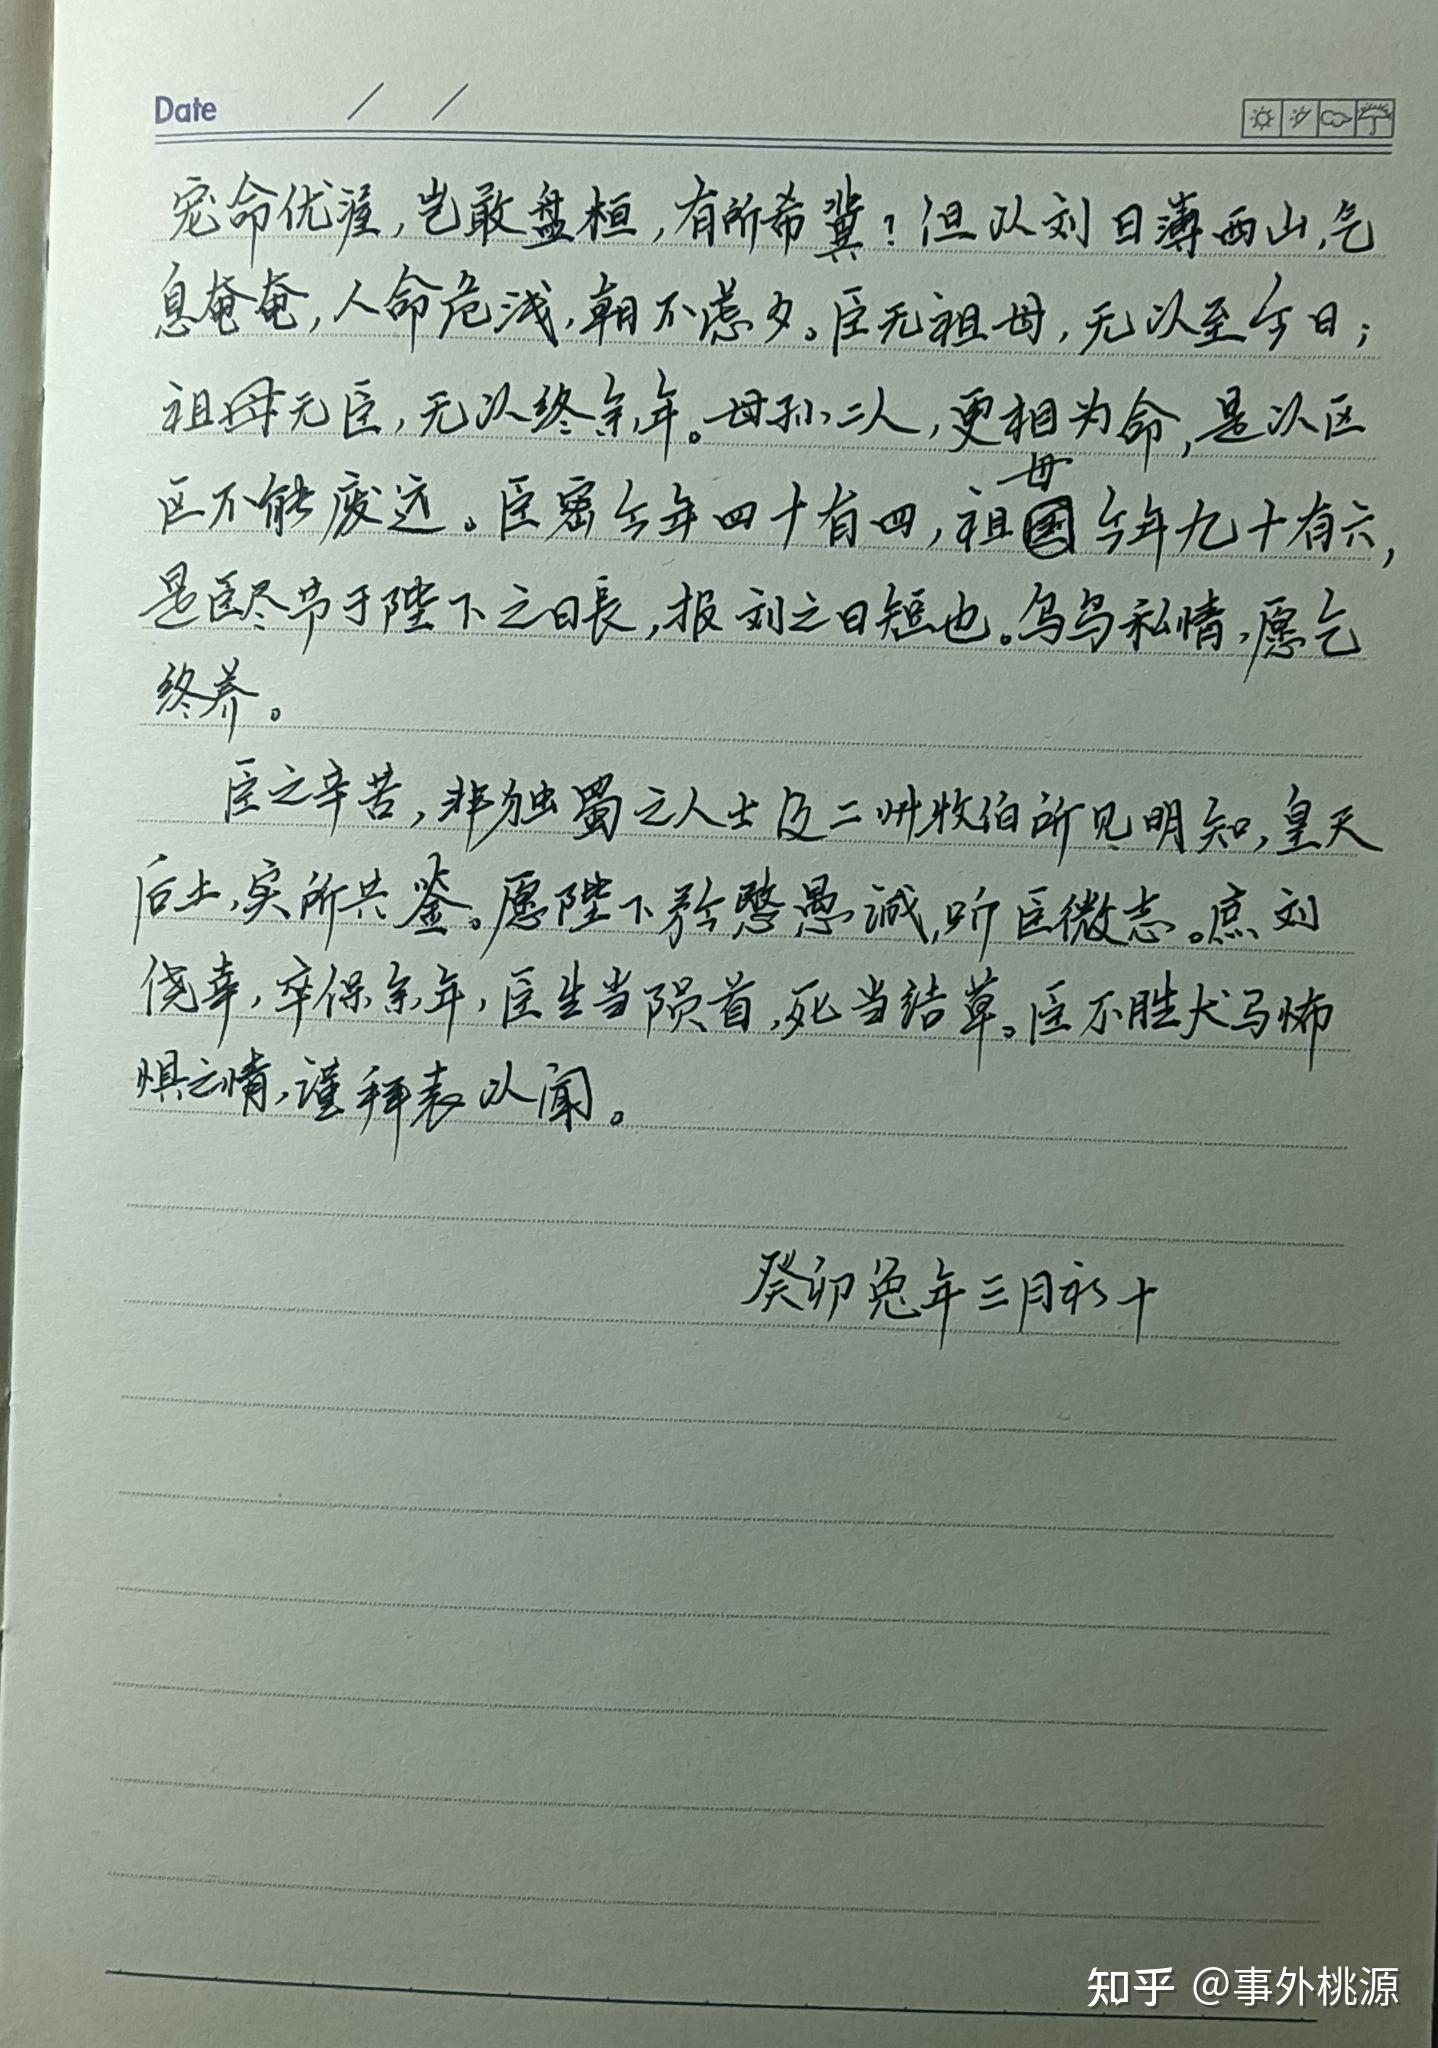 Date / /
宠命优渥，岂敢盘桓，有所希冀？但以刘日薄西山，气
息奄奄，人命危浅，朝不虑夕。臣无祖母，无以至今日；
祖母无臣，无以终余年。母孙二人，更相为命，是以区
区不能废远。臣密今年四十有四，祖母今年九十有六，
是臣尽节于陛下之日長，报刘之日短也。乌鸟私情，愿乞
终养。
臣之辛苦，非独蜀之人士及二州牧伯所见明知，皇天
后土，实所共鉴。愿陛下矜愍愚诚，听臣微志。庶刘
侥幸，卒保余年，臣生当陨首，死当结草。臣不胜犬马怖
惧之情，谨拜表以闻。
癸卯兔年三月初十
知乎 @事外桃源